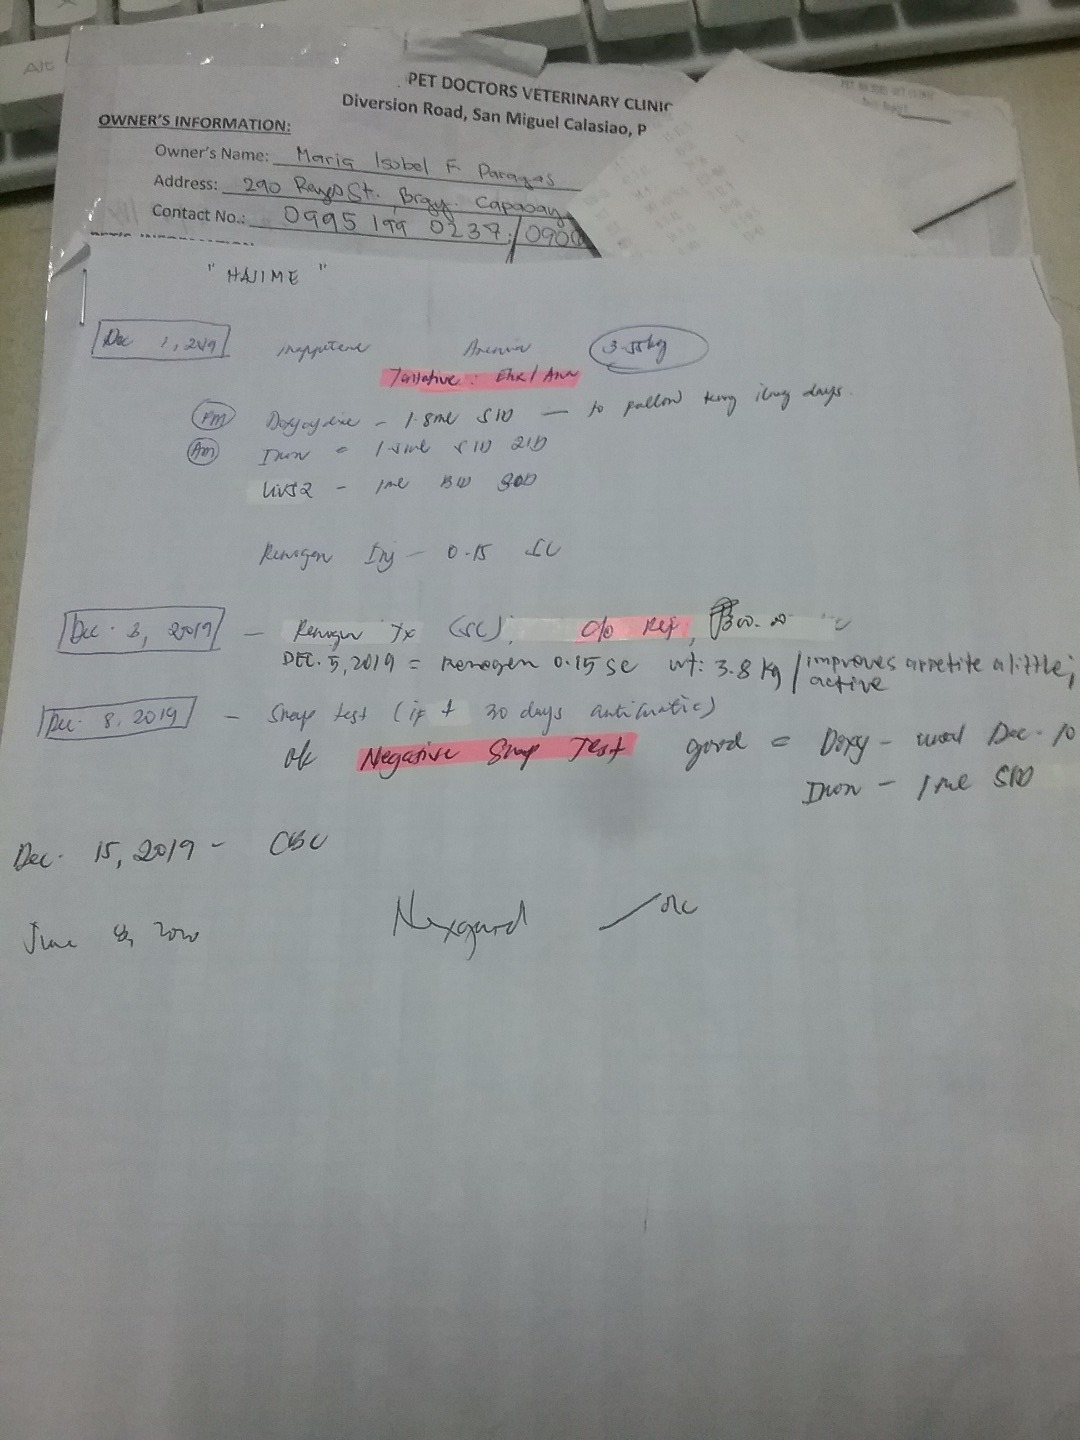 Alt
PET DOCTORS VETERINARY CLINIC
Diversion Road, San Miguel Calasiao, P
OWNER'S INFORMATION:
Owner's Name: Maria Isobel F. Paragas
Address: 290 Reyes St., Brgy.
Contact No.: 0995 199 0237 /
" HAJIME "
Dec 1, 2019 Anemia 3.55kg
PM Doxycycline - 1.8ml SID — to follow
Am Iron = SID 21D
Liv52 - 1ml BID 30D
Renogen Inj - 0.15 SC
Dec. 3, 2019 - Renogen Tx (SC). c/o Ref,
DEC. 5, 2019 = Renogen 0.15 SC wt: 3.8 kg / improves appetite a little;
active
Dec. 8, 2019 - Snap test (if + 30 days
ok Negative Snap Test good = Doxy - until Dec. 10
Iron - 1 ml SID
Dec. 15, 2019 - CBC
June 8, 2020 Nexgard